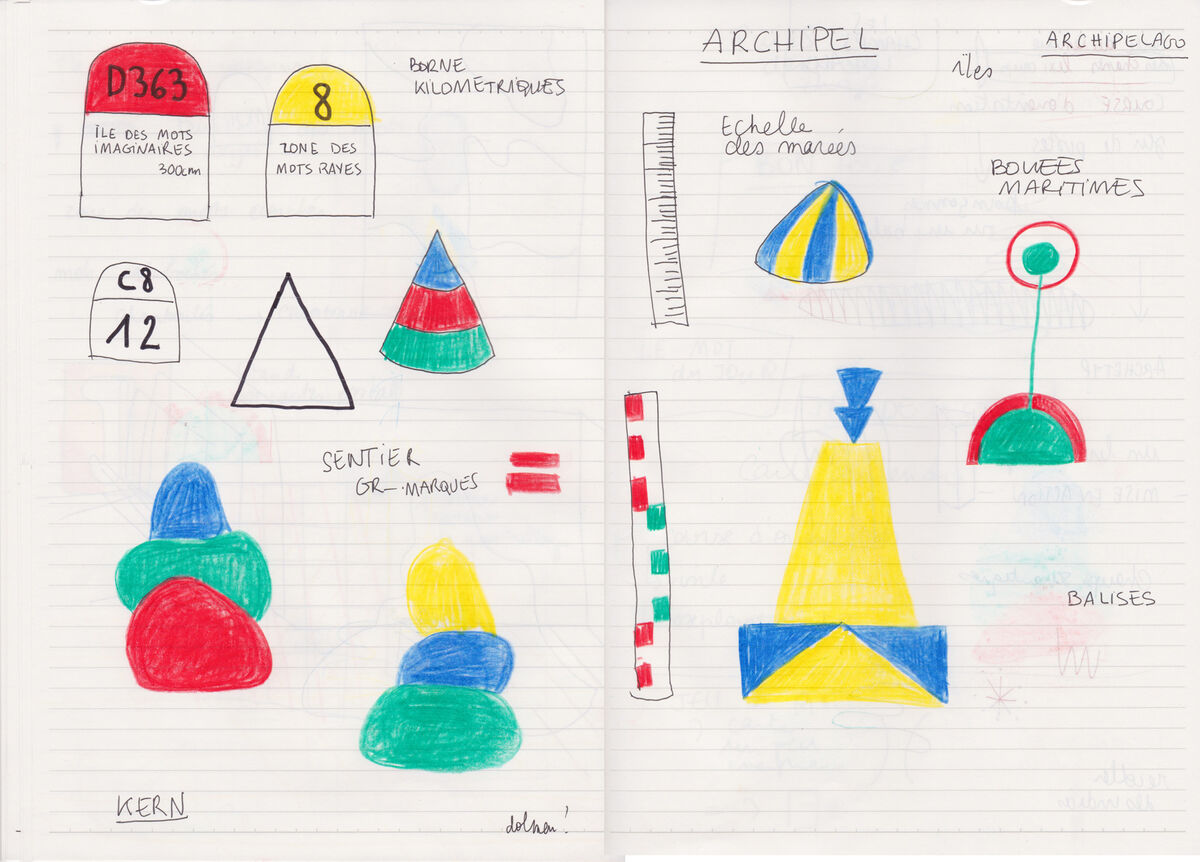 D363
ÎLE DES MOTS
IMAGINAIRES
300cm
8
ZONE DES
MOTS RAYES
BORNE
KILOMETRIQUES
C8
12
SENTIER
GR-.MARQUES
KERN
dolmen!
ARCHIPEL
ARCHIPELAGO
îles
Echelle
des marées
BOUEES
MARITIMES
BALISES